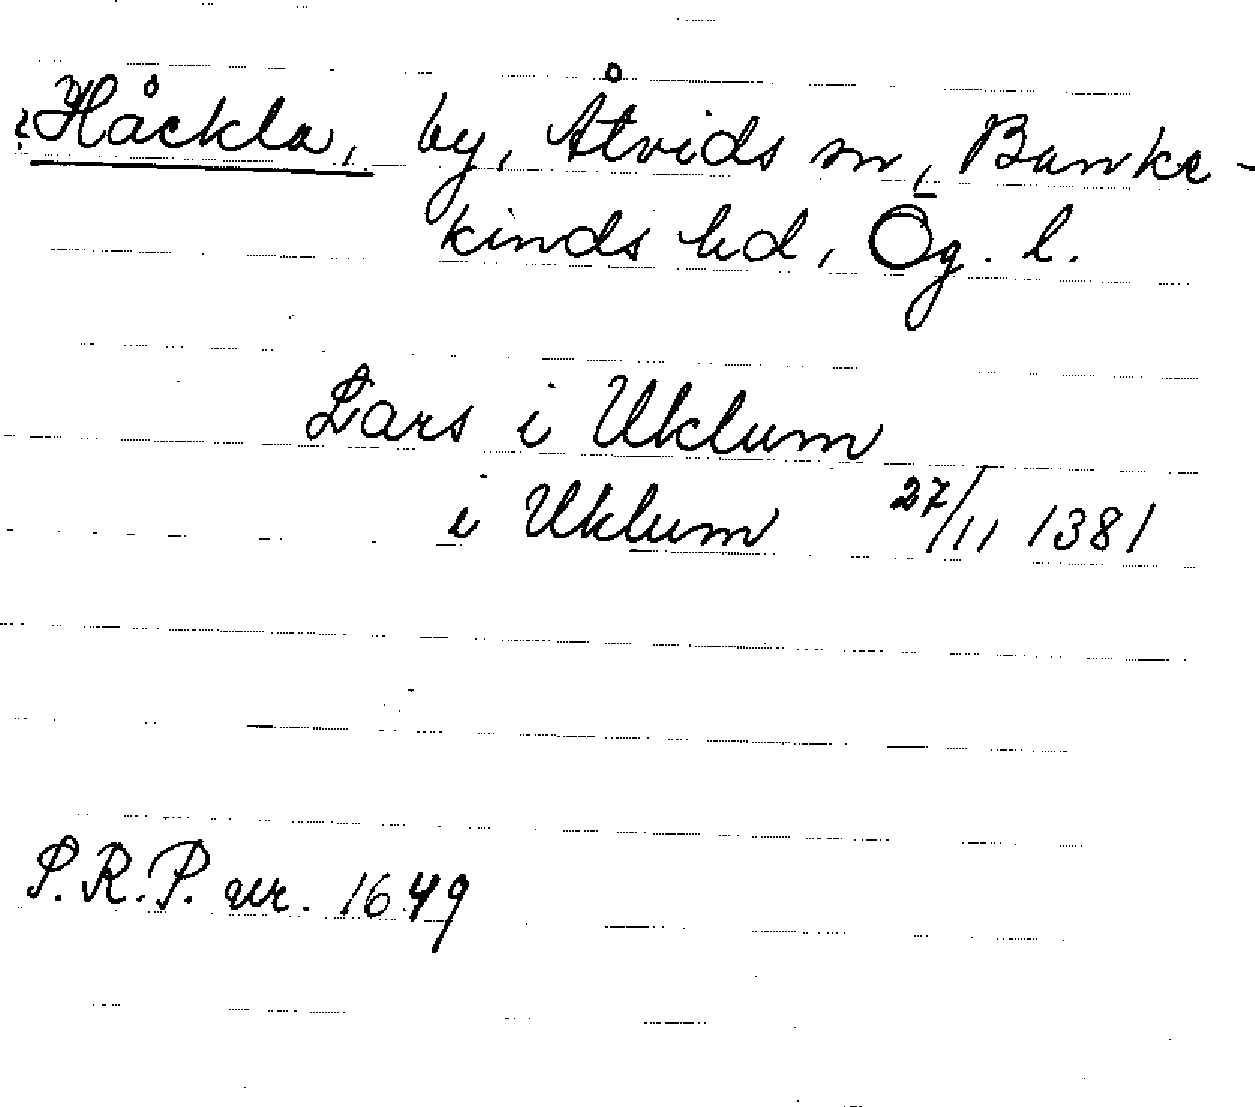 ?Håckla, by, Åtvids sn, Banke-
kinds hd, Ög. l.
Lars i Uklum
i Uklum 27/11 1381
S.R.P. nr. 1649